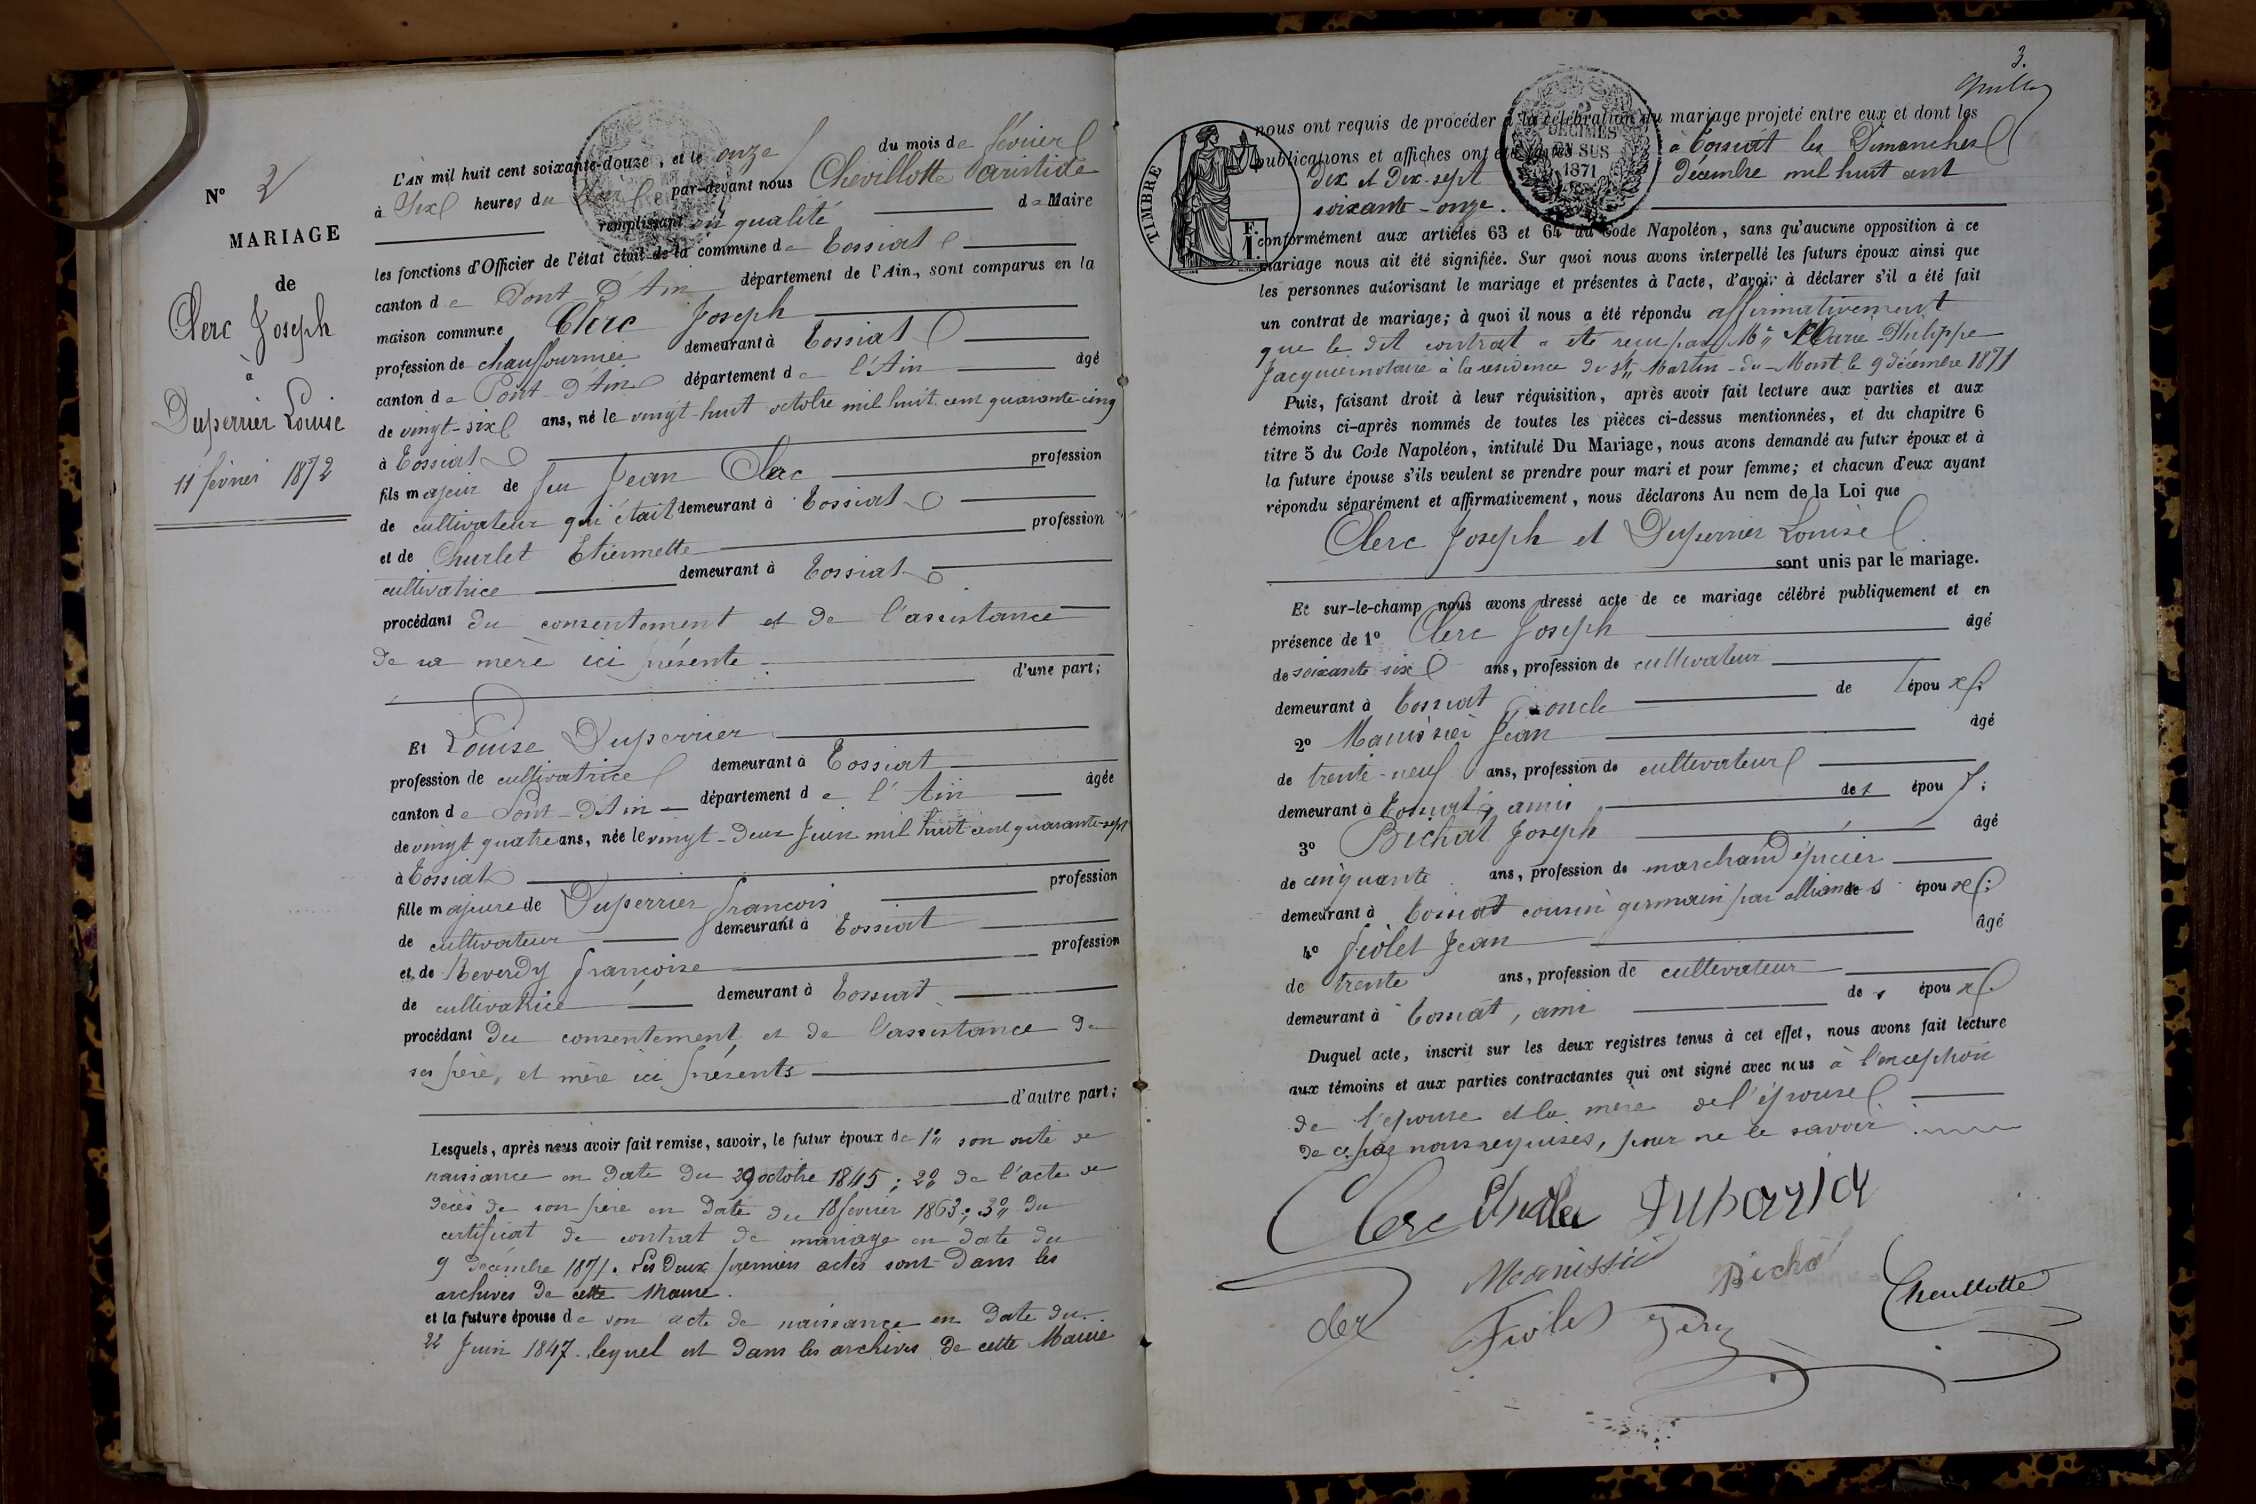 N° 2
MARIAGE
de
Clerc Joseph
à
Duperrier Louise
11 février 1872
L'AN mil huit cent soixante-douze, et le onze du mois de février
à Six heures du soir par-devant nous Chevillotte aristide
remplissant en qualité de Maire
les fonctions d'Officier de l'état civil de la commune de Tossiat
canton de Pont d'Ain département de l'Ain, sont comparus en la
maison commune Clerc Joseph
profession de chauffournier demeurant à Tossiat
canton de Pont-d'Ain département de l'Ain âgé
de vingt-six ans, né le vingt-huit octobre mil huit cent quarante-cinq
à Tossiat
fils majeur de feu Jean Clerc profession
de cultivateur qui était demeurant à Tossiat
et de Churlet Etiennette profession
cultivatrice demeurant à Tossiat
procédant du consentement et de l'assistance
de sa mère ici présente
d'une part;
Et Louise Duperrier
profession de cultivatrice demeurant à Tossiat
canton de Pont-d'Ain département de l'Ain âgée
de vingt quatre ans, née le vingt-deux Juin mil huit cent quarante-sept
à Tossiat
fille majeure de Duperrier françois profession
de cultivateur demeurant à Tossiat
et de Reverdy françoise profession
de cultivatrice demeurant à Tossiat
procédant du consentement et de l'assistance de
ses père, et mère ici présents
d'autre part;
Lesquels, après nous avoir fait remise, savoir, le futur époux de 1° son acte de
naissance en date du 29 octobre 1845; 2° de l'acte de
décès de son père en date du 18 février 1863; 3° du
certificat de contrat de mariage en date du
9 décembre 1871. Les deux premiers actes sont dans les
archives de cette Mairie.
et la future épouse de son acte de naissance en date du
22 Juin 1847. lequel est dans les archives de cette Mairie
3.
TIMBRE
1 F.
2 DÉCIMES
EN SUS
1871
nous ont requis de procéder à la célébration du mariage projeté entre eux et dont les
publications et affiches ont été faites à Tossiat les Dimanches
dix et dix-sept décembre mil huit cent
soixante-onze.
conformément aux articles 63 et 64 du Code Napoléon, sans qu'aucune opposition à ce
mariage nous ait été signifiée. Sur quoi nous avons interpellé les futurs époux ainsi que
les personnes autorisant le mariage et présentes à l'acte, d'avoir à déclarer s'il a été fait
un contrat de mariage; à quoi il nous a été répondu affirmativement
que le dit contrat a été reçu par M° Marie-Philippe
Jacquier notaire à la résidence de St Martin-du-Mont le 9 décembre 1871
Puis, faisant droit à leur réquisition, après avoir fait lecture aux parties et aux
témoins ci-après nommés de toutes les pièces ci-dessus mentionnées, et du chapitre 6
titre 5 du Code Napoléon, intitulé Du Mariage, nous avons demandé au futur époux et à
la future épouse s'ils veulent se prendre pour mari et pour femme; et chacun d'eux ayant
répondu séparément et affirmativement, nous déclarons Au nom de la Loi que
Clerc Joseph et Duperrier Louise
sont unis par le mariage.
Et sur-le-champ nous avons dressé acte de ce mariage célébré publiquement et en
présence de 1° Clerc Joseph âgé
de soixante six ans, profession de cultivateur
demeurant à Tossiat, oncle de l'époux;
2° Manissier Jean âgé
de trente-neuf ans, profession de cultivateur
demeurant à Tossiat, ami des époux;
3° Bichat Joseph âgé
de cinquante ans, profession de marchand épicier
demeurant à Tossiat cousin germain par alliance des époux;
4° fiolet Jean âgé
de trente ans, profession de cultivateur
demeurant à Tossiat, ami des époux.
Duquel acte, inscrit sur les deux registres tenus à cet effet, nous avons fait lecture
aux témoins et aux parties contractantes qui ont signé avec nous à l'exception
de l'épouse et la mère de l'épouse
de ce par nous requises, pour ne le savoir.
Clerc Duparria
Manissié Bicha Chevillotte
clerc Fiolet